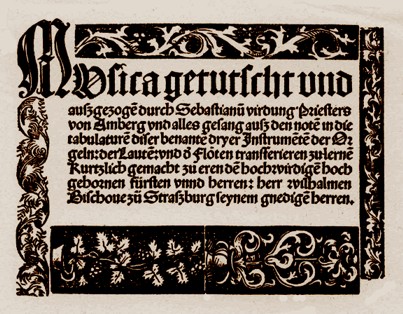 Musica getutscht und
außgezogē durch Sebastianū virdung Priesters
von Amberg vnd alles gesang auß den notē in die
tabulaturē diser benantē dryer Instrumētē der Or
geln: der Lautē: vnd d Flöten transferieren zu lernē
Kurtzlich gemacht zu eren dē hochwirdigē hoch
gebornen fürsten vnnd herren: herr wilhalmen
Bischoue zū Straßburg seynem gnedigē herren.